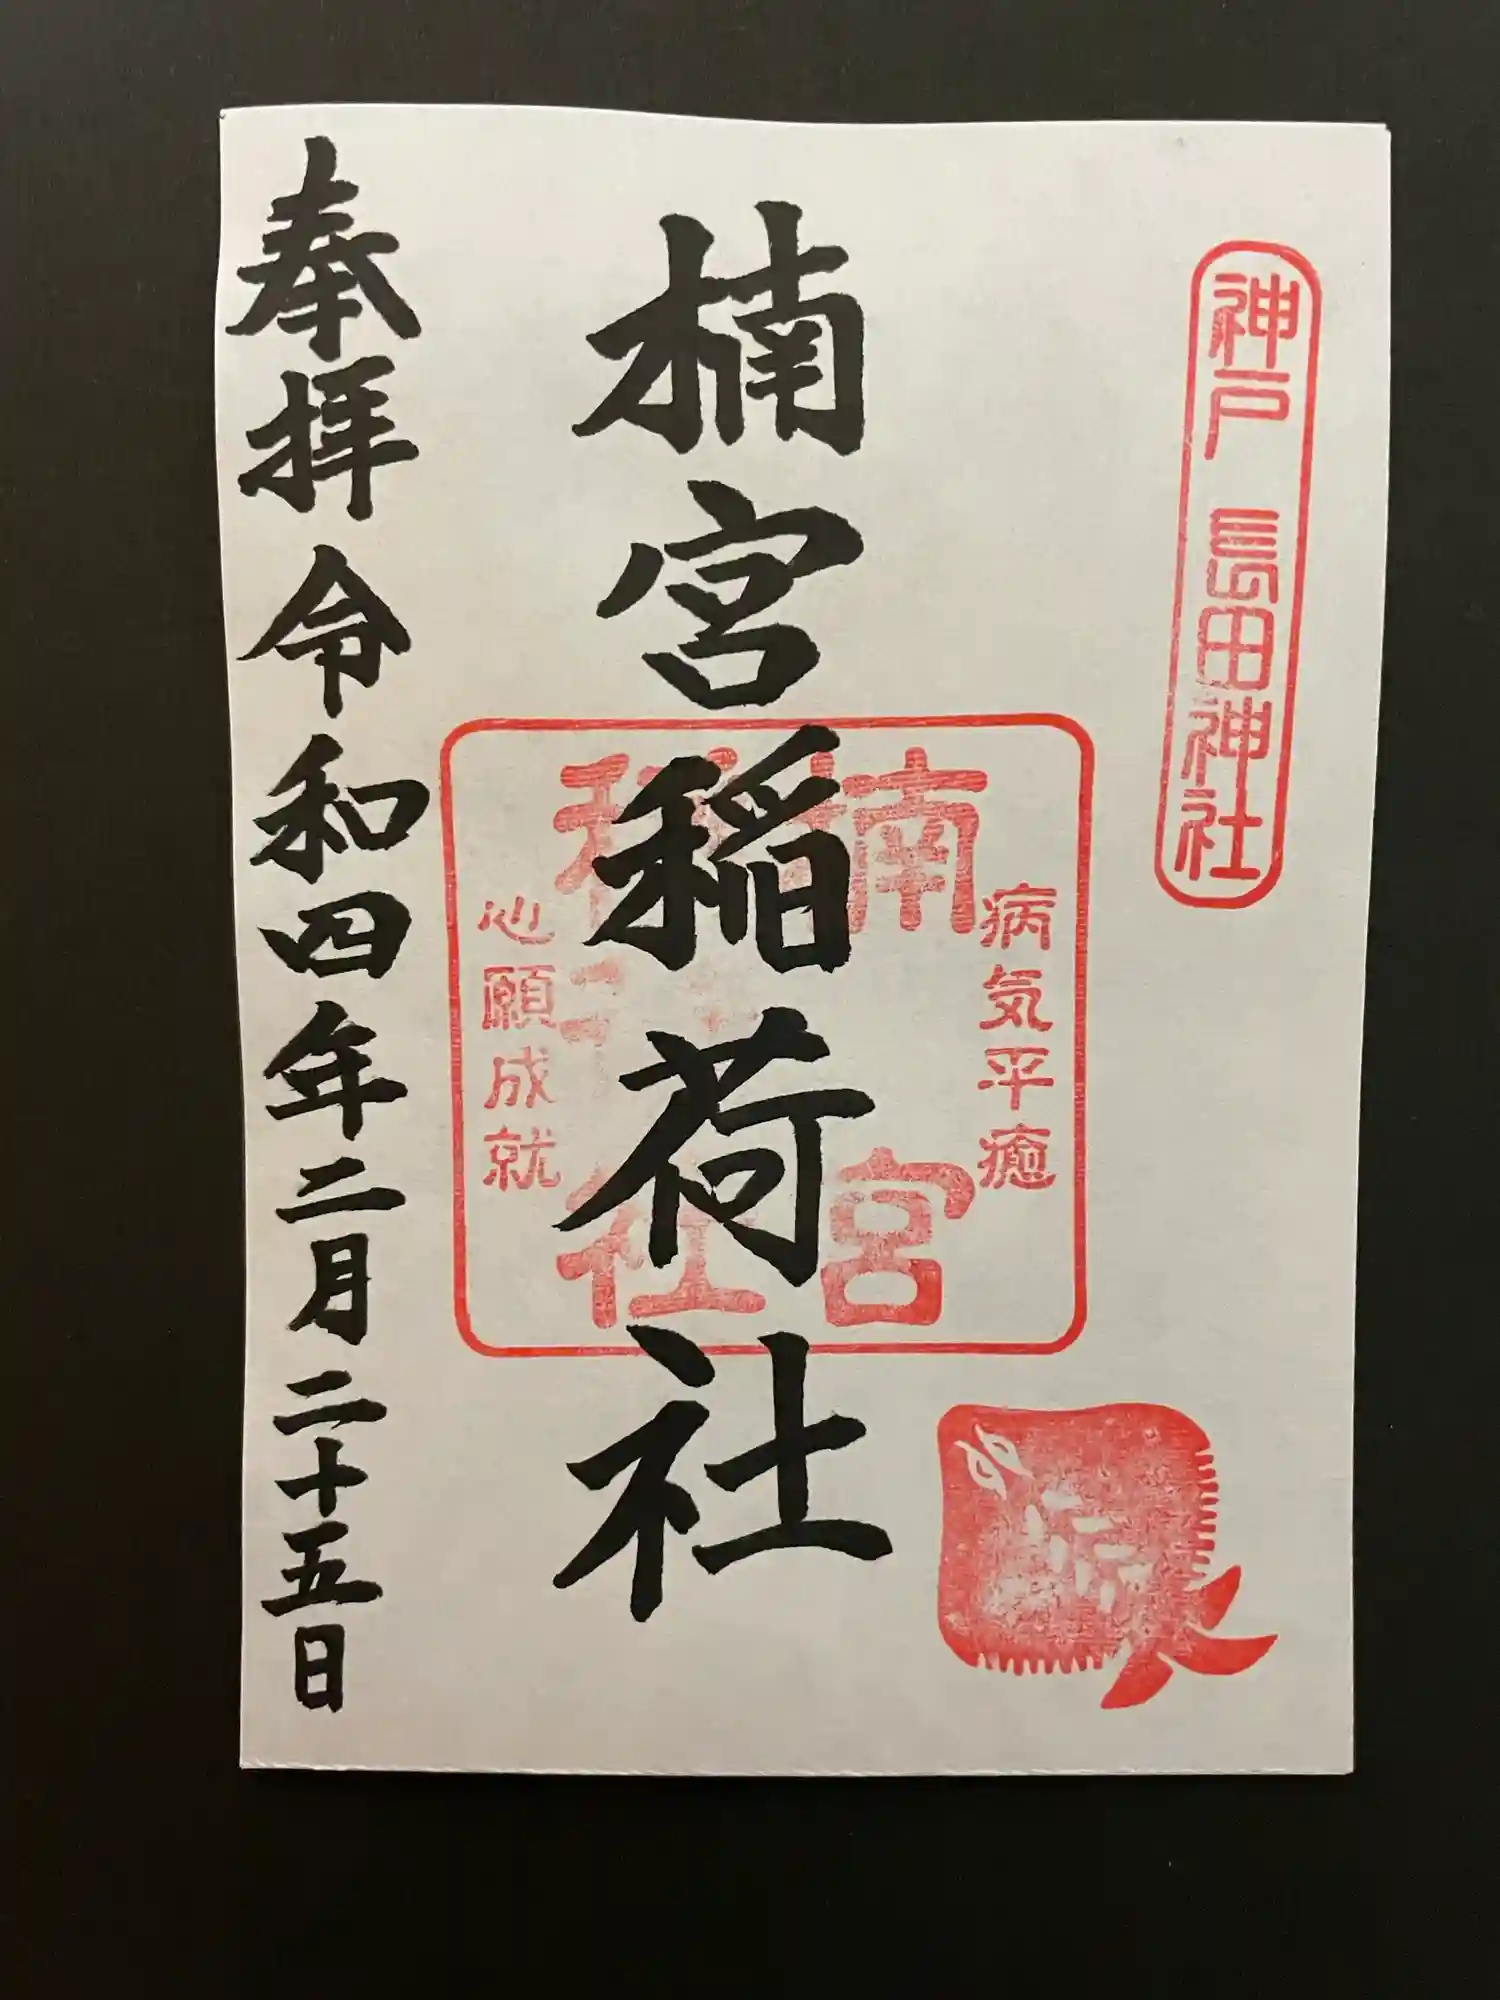 神戸 長田神社
楠宮稲荷社
病気平癒
楠宮
稲荷社
心願成就
奉拝 令和四年二月二十五日